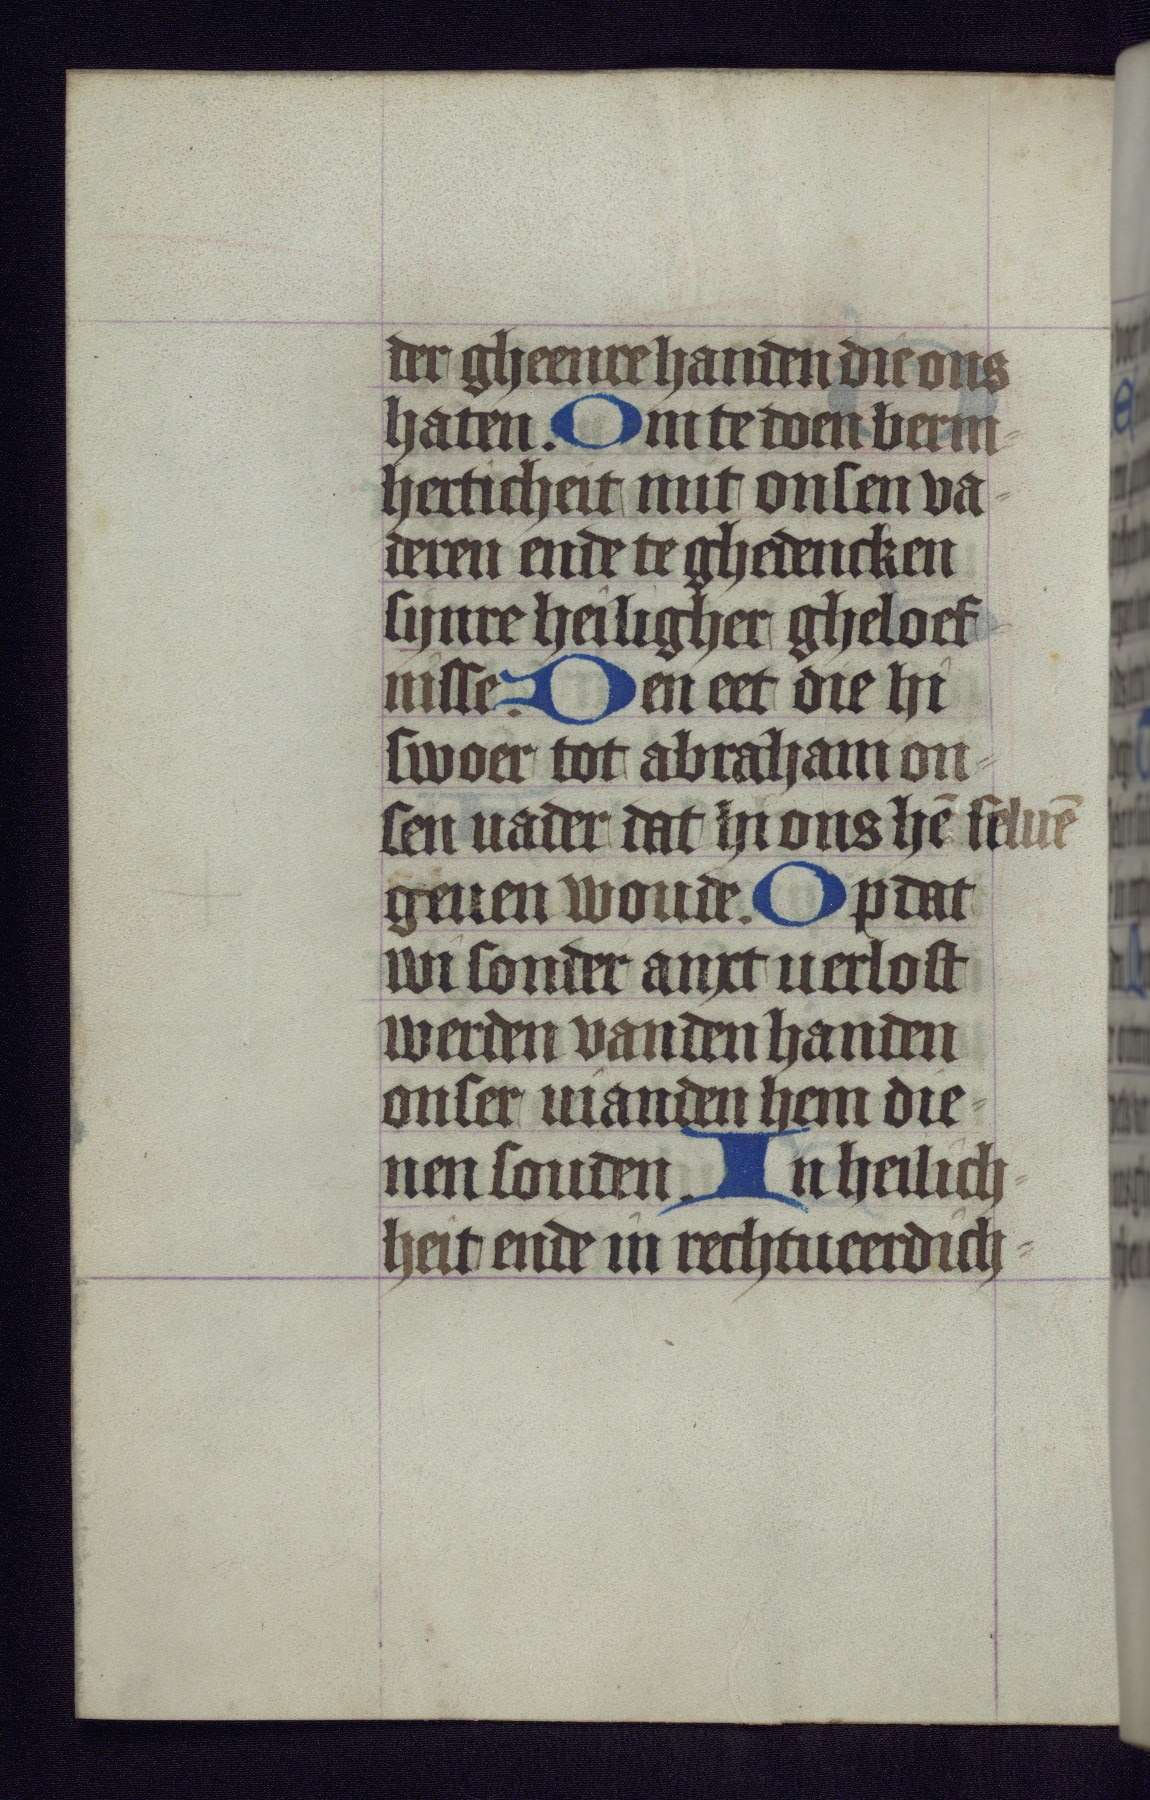 der gheenre handen die ons
haten. Om te doen berm-
herticheit mit onsen va-
deren ende te ghedencken
synre heiligher gheloef-
nisse. Den eet die hi
swoer tot abraham on-
sen uader dat hi ons hē seluē
geuen woude. Op dat
wi sonder anxt uerlost
werden vanden handen
onser uianden hem die-
nen souden. In heilich-
heit ende in rechtueerdich-